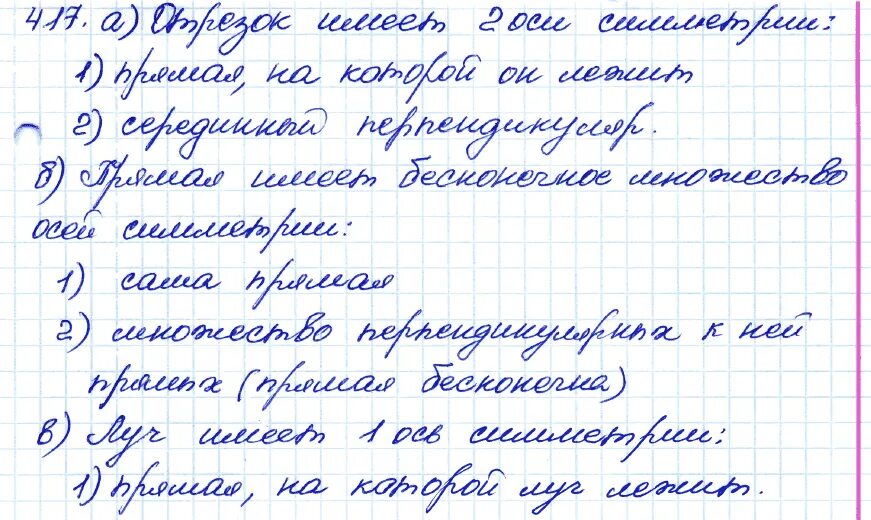 417. а) Отрезок имеет 2 оси симметрии:
1) прямая, на которой он лежит
2) серединный перпендикуляр.
б) Прямая имеет бесконечное множество
осей симметрии:
1) сама прямая
2) множество перпендикулярных к ней
прямых (прямая бесконечна)
в) Луч имеет 1 ось симметрии:
1) прямая, на которой луч лежит.